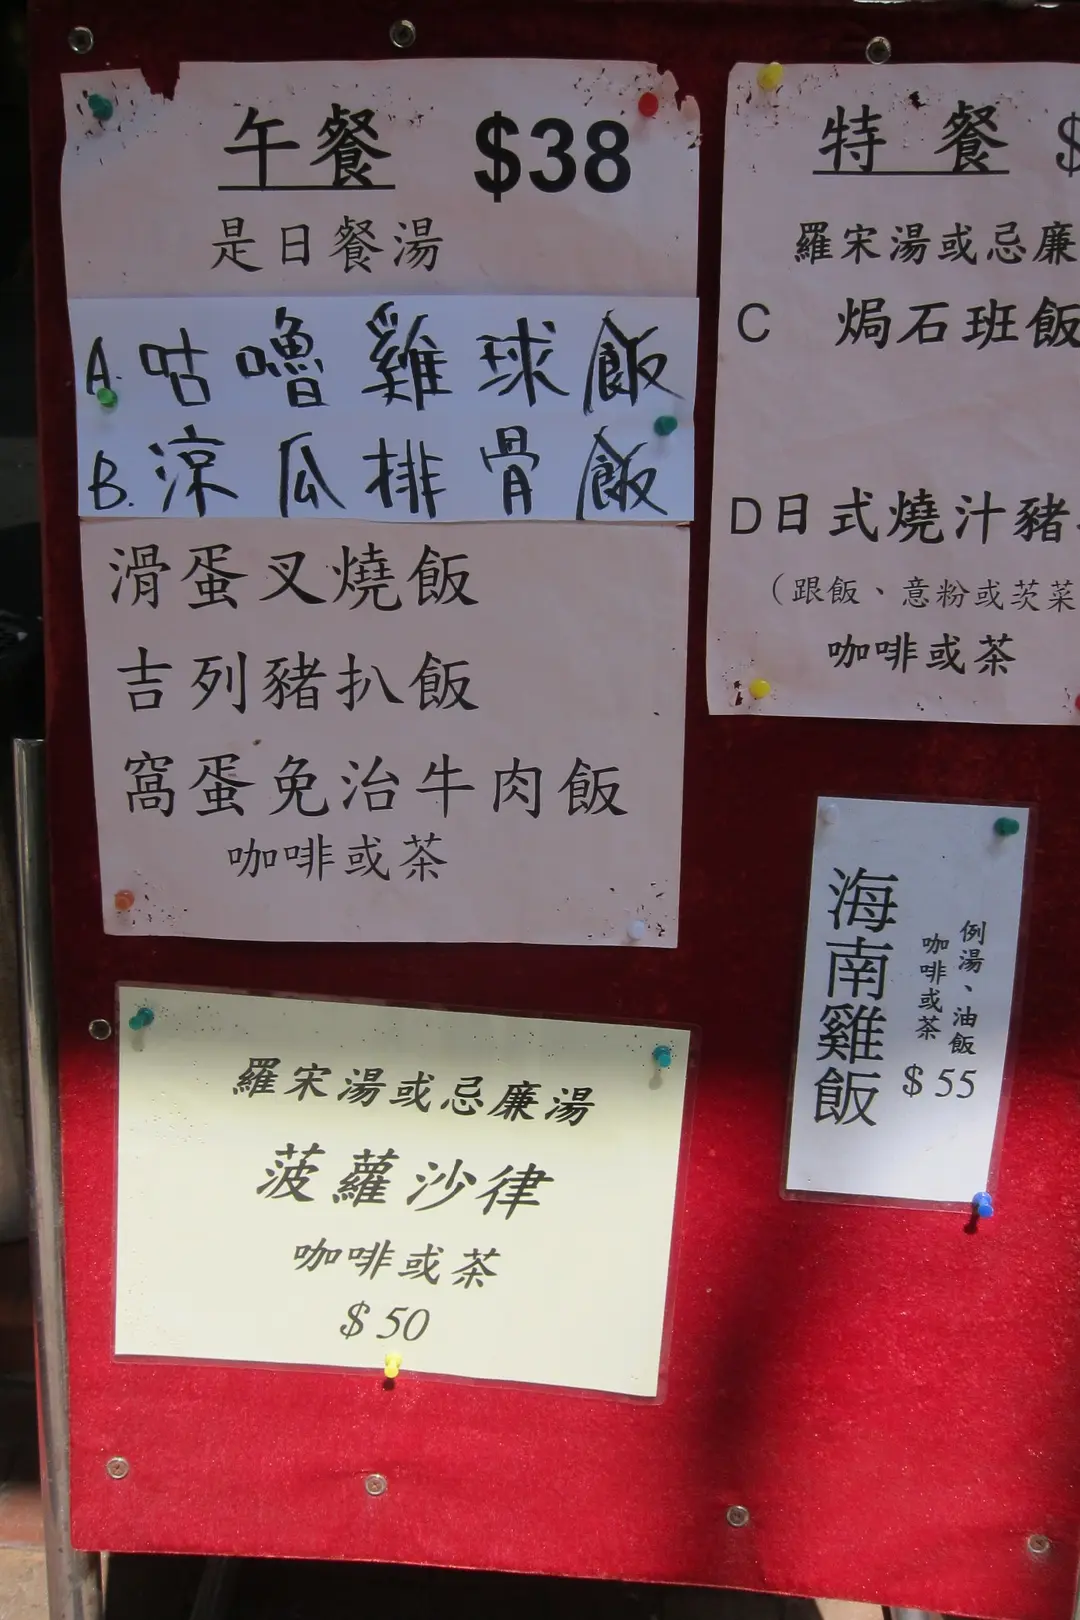 午餐 $38
是日餐湯
A.咕嚕雞球飯
B.涼瓜排骨飯
滑蛋叉燒飯
吉列豬扒飯
窩蛋免治牛肉飯
咖啡或茶
特餐 $
羅宋湯或忌廉
C 焗石班飯
D日式燒汁豬
（跟飯、意粉或茨菜
咖啡或茶
海南雞飯
例湯、油飯
咖啡或茶
$55
羅宋湯或忌廉湯
菠蘿沙律
咖啡或茶
$50